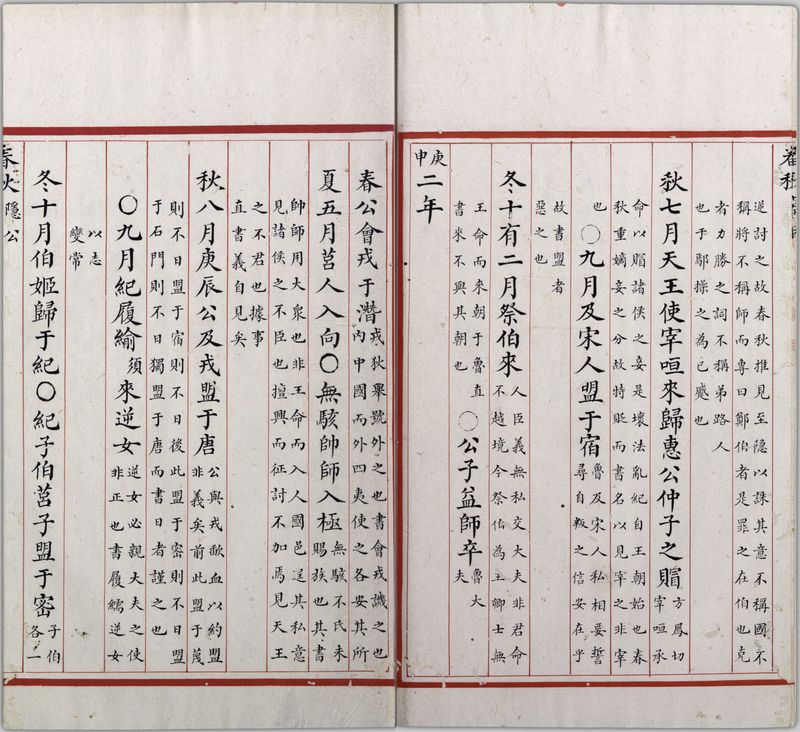 春秋
逆討之故春秋推見至隱以誅其意不稱國不
稱將不稱師而專曰鄭伯者是罪之在伯也克
者力勝之詞不稱弟路人
也于鄢操之為已蹙也
秋七月天王使宰咺來歸惠公仲子之賵
方鳳切
宰咺承
命以賵諸侯之妾是壞法亂紀自王朝始也春
秋重嫡妾之分故特貶而書名以見宰之非宰
也
〇九月及宋人盟于宿
魯及宋人私相要誓
尋自叛之信安在乎
故書盟者
惡之也
冬十有二月祭伯來
人臣義無私交大夫非君命
不越境今祭伯為王卿士無
王命而來朝于魯直
書來不與其朝也
〇公子益師卒
魯大
夫
庚申
二年
春公會戎于潛
戎狄舉號外之也書會戎譏之也
内中國而外四夷使之各安其所
夏五月莒人入向〇無駭帥師入極
無駭不氏未
賜族也其書
帥師用大衆也非王命而入人國邑逞其私意
見諸侯之不臣也擅興而征討不加焉見天王
之不君也據事
直書義自見矣
秋八月庚辰公及戎盟于唐
公與戎歃血以約盟
非義矣前此盟于蔑
則不日盟于宿則不日後此盟于密則不日盟
于石門則不日獨盟于唐而書日者謹之也
〇九月紀履緰須來逆女
逆女必親大夫之使
非正也書履繻逆女
以志
變常
冬十月伯姬歸于紀〇紀子伯莒子盟于密
子伯
各一
春秋 隱公